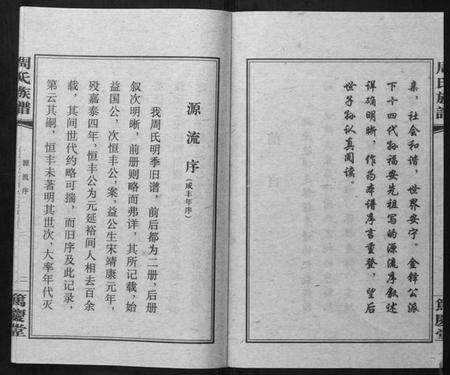 周氏族譜
集，社会和谐，世界安宁，金锋公派
下十四代孙福安先祖写的源流序叙述
详确明晰，作为本谱序言重登，望后
世子孙认真阅读。
篤慶堂
源流序（咸丰年序）
我周氏明季旧谱，前后都为二册，后册
叙次明晰，前册则略而弗详，其所记载，始
益国公，次恒丰公，案，益公生宋靖康元年，
殁嘉泰四年，恒丰公为元延裕间人相去百余
载，其间世代约略可揣，而旧序及此记录，
第云其嗣，恒丰未著明其世次，大率年代灭
周氏族譜
源流序
二
篤慶堂